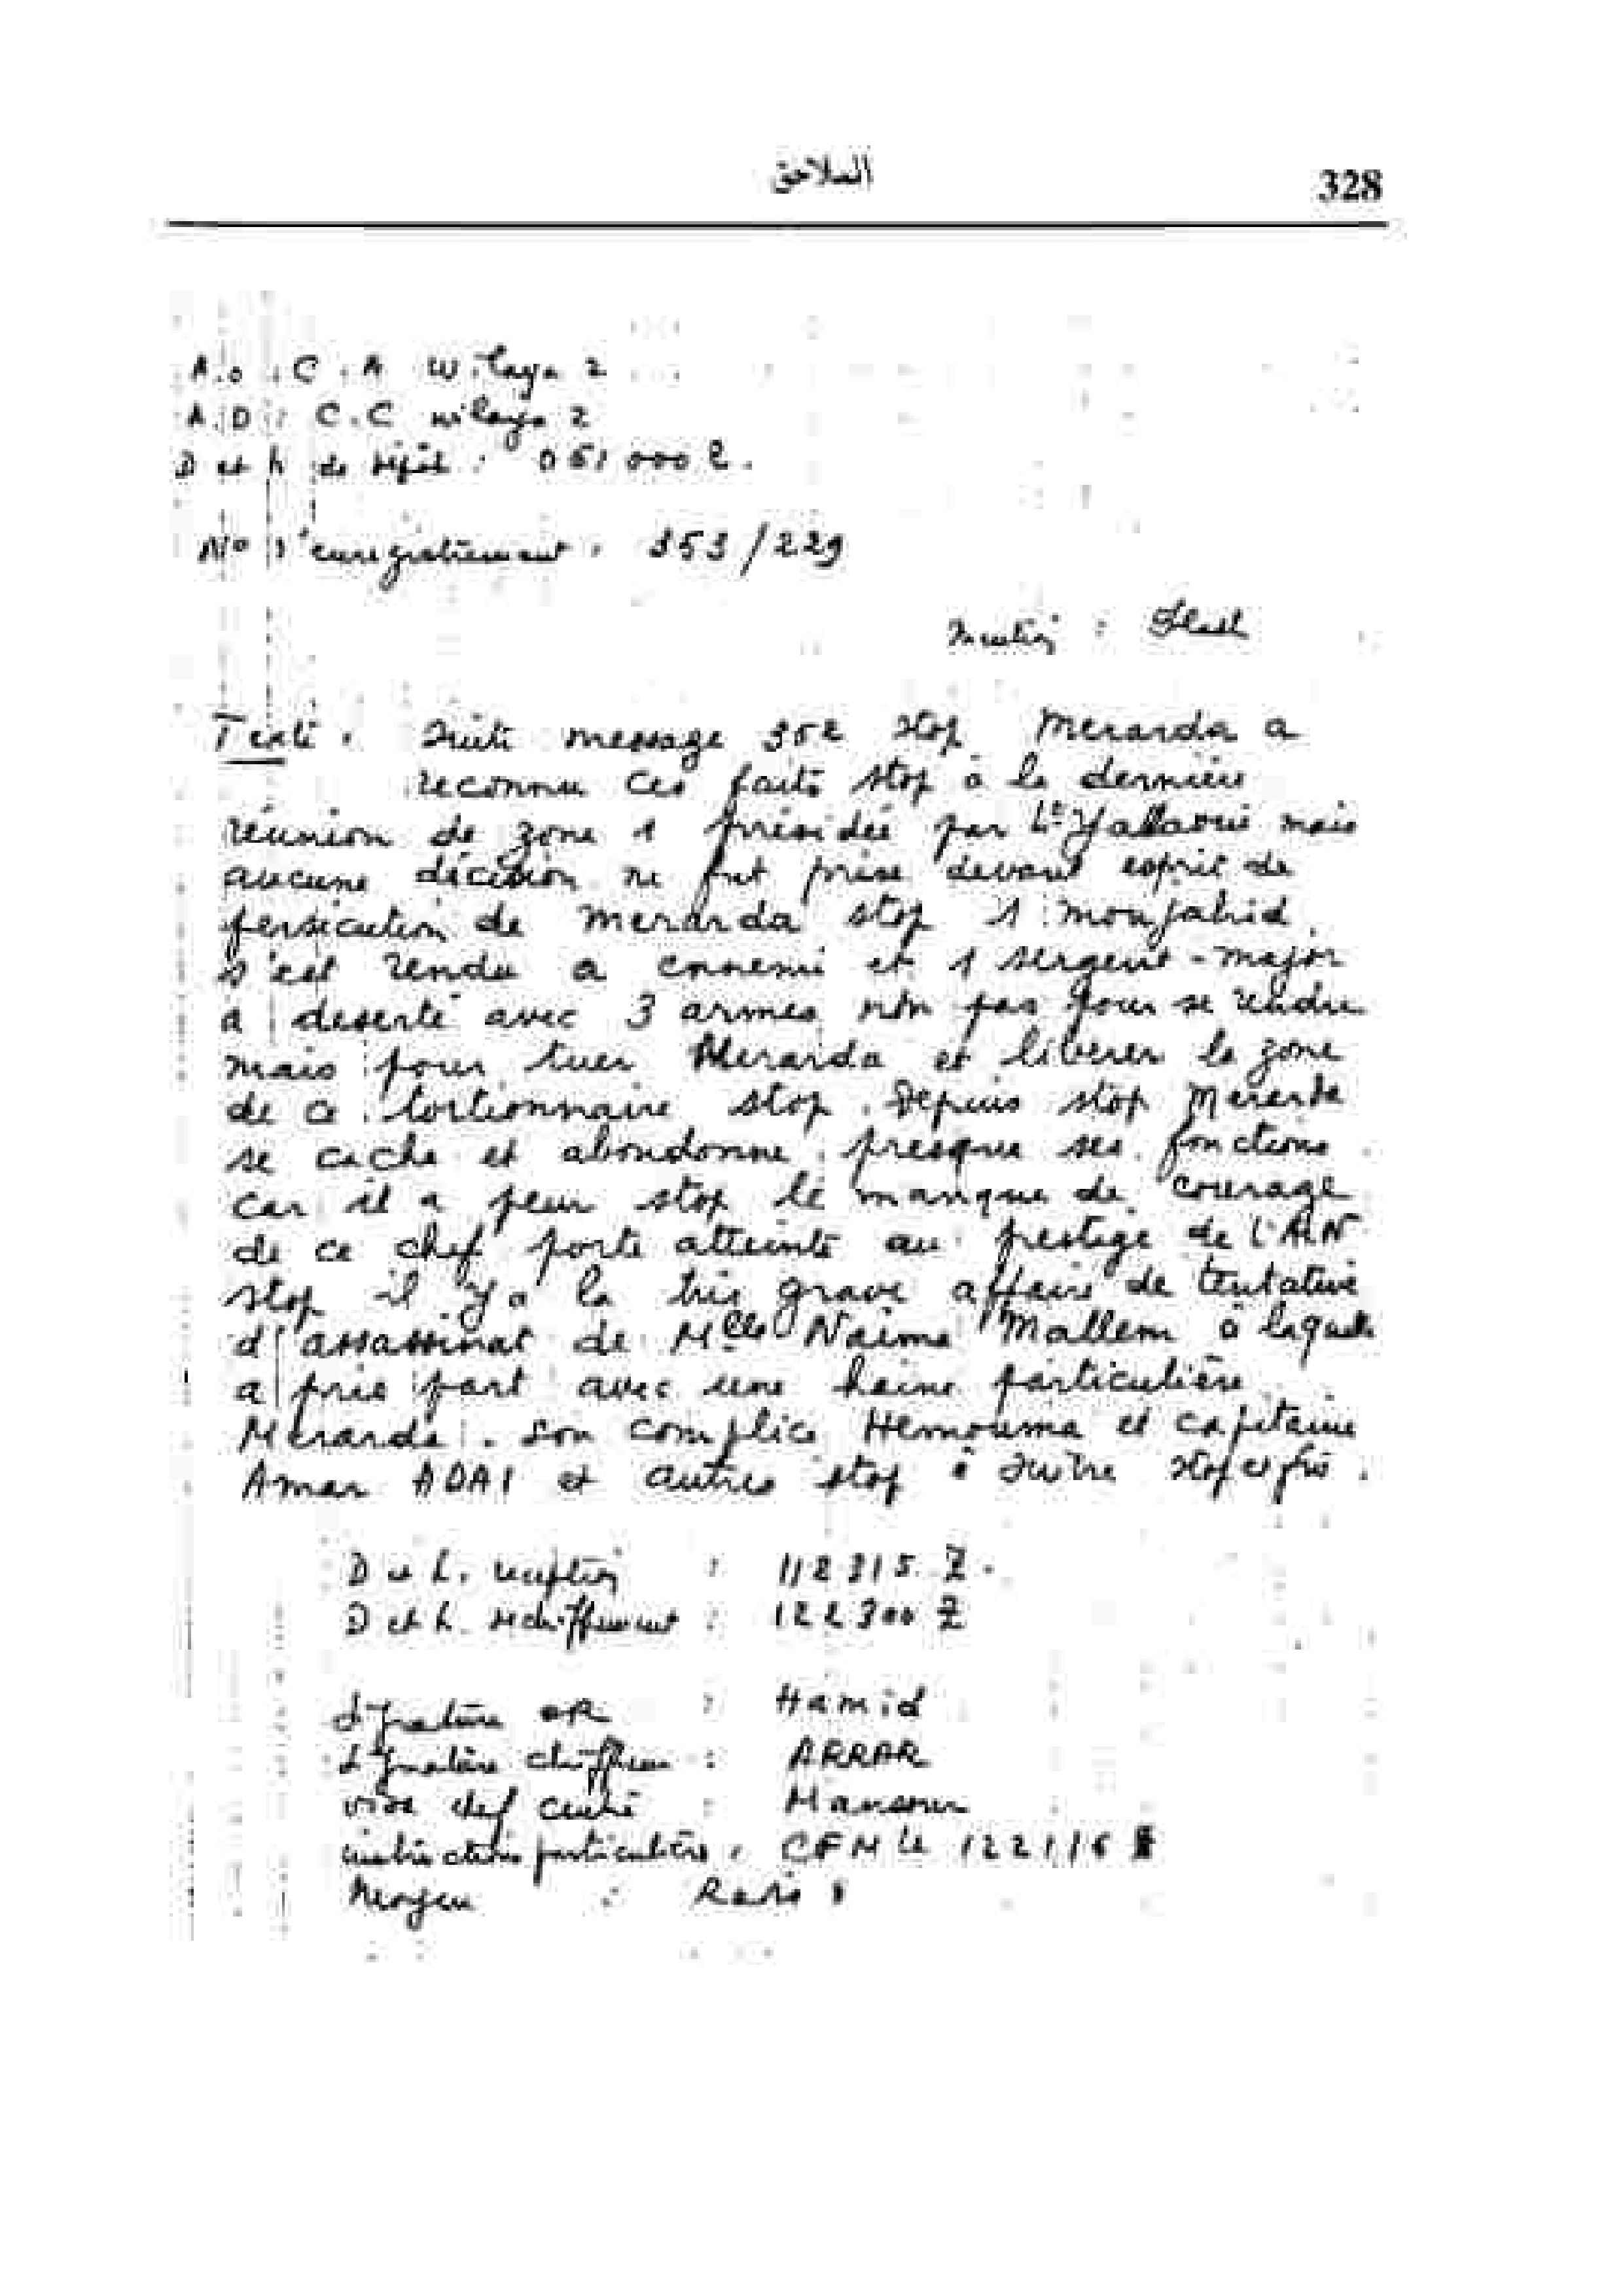 الملاحق
328
A.O. C.A Wilaya 2
A.D: C.C wilaya 2
D et h de dépôt : 051000Z.
N° d'enregistrement : 353/229
Mention : Flash
Texte : Suite message 352 stop Merarda a
reconnu ces faits stop à la dernière
réunion de zone 1 présidée par Lt mais
aucune décision ne fut prise devant esprit de
persécution de Merarda stop 1 moujahid
s'est rendu a ennemi et 1 sergent-major
a deserté avec 3 armes non pas pour se rendre
mais pour tuer Merarda et liberer la zone
de ce tortionnaire stop. Depuis stop Merarda
se cache et abondonne presque ses fonctions
car il a peur stop le manque de courage
de ce chef porte atteinte au prestige de l'ALN
stop il y a la très grave affaire de tentative
d'assassinat de Melle Naima Mallem à laquelle
a pris part avec une haine particulière
Merarda. son complice Hemouma et capitaine
Amar ADAI et autres stop à suivre stop et fin.
D et h. reception : 112315 Z.
D et h. dechiffrement : 122300 Z
Signature OR : Hamid
Signature chiffreur : ARRAR
visa chef centre : Mansour
instructions particulières : CFM le 122116
Moyen : Radio